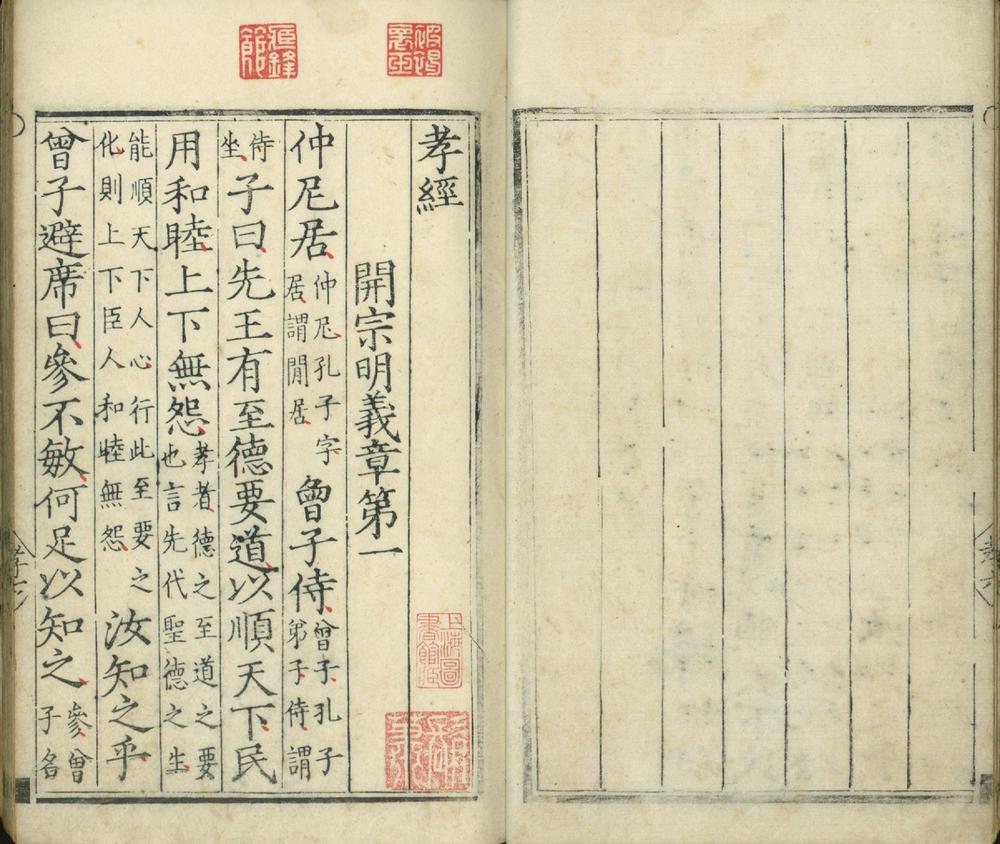 孝經
開宗明義章第一
仲尼居仲尼孔子字居謂閒居曾子侍曾子孔子弟子侍謂
侍坐子曰先王有至德要道以順天下民
用和睦上下無怨孝者德之至道之要也言先代聖德之主
能順天下人心行此至要之化則上下臣人和睦無怨汝知之乎
曾子避席曰參不敏何足以知之參曾子名
上海圖書館藏